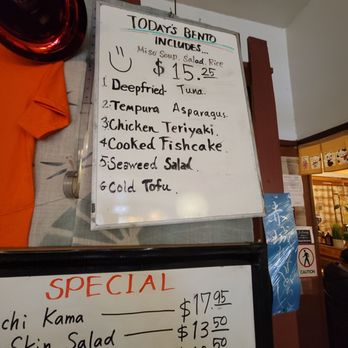 TODAY'S BENTO
INCLUDES...
Miso Soup, Salad, Rice
$15.25
1 Deepfried Tuna.
2. Tempura Asparagus
3. Chicken Teriyaki.
4. Cooked Fishcake.
5. Seaweed Salad.
6. Cold Tofu.
SPECIAL
chi Kama — $17.95
Skin Salad — $13.50
CAUTION